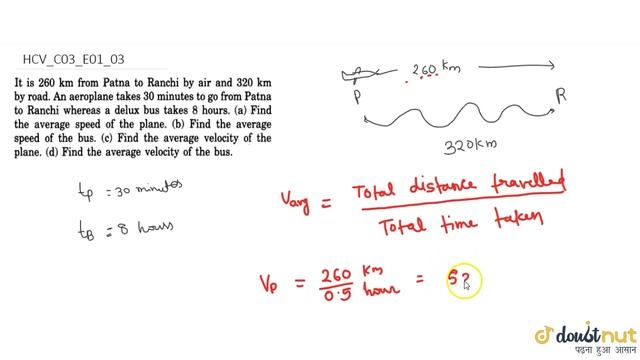 HCV_C03_E01_03
It is 260 km from Patna to Ranchi by air and 320 km
by road. An aeroplane takes 30 minutes to go from Patna
to Ranchi whereas a delux bus takes 8 hours. (a) Find
the average speed of the plane. (b) Find the average
speed of the bus. (c) Find the average velocity of the
plane. (d) Find the average velocity of the bus.
260 km
P R
320km
tP = 30 minutes
tB = 8 hours
Vavg = Total distance travelled
Total time taken
VP = 260 km / 0.5 hour = 52
doubtnut
पढ़ना हुआ आसान